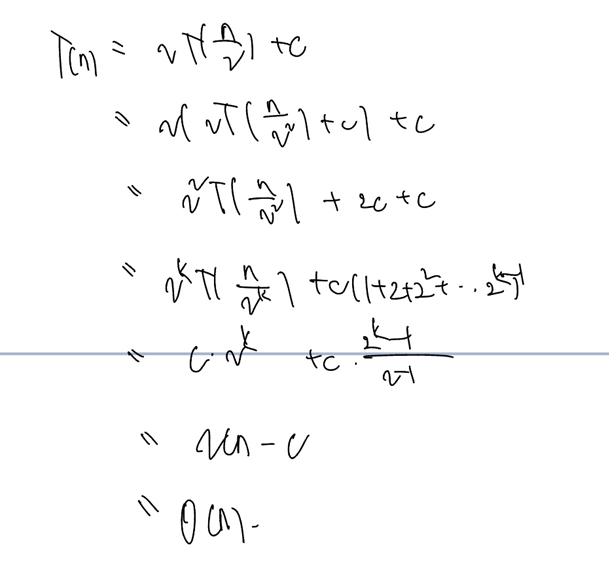 T(n) = 2T(n/2) + c
= 2(2T(n/2²) + c) + c
= 2²T(n/2²) + 2c + c
= 2ᵏT(n/2ᵏ) + c(1+2+2²+...2ᵏ⁻¹)
= c·2ᵏ + c·(2ᵏ-1)/(2-1)
= 2cn - c
= O(n).